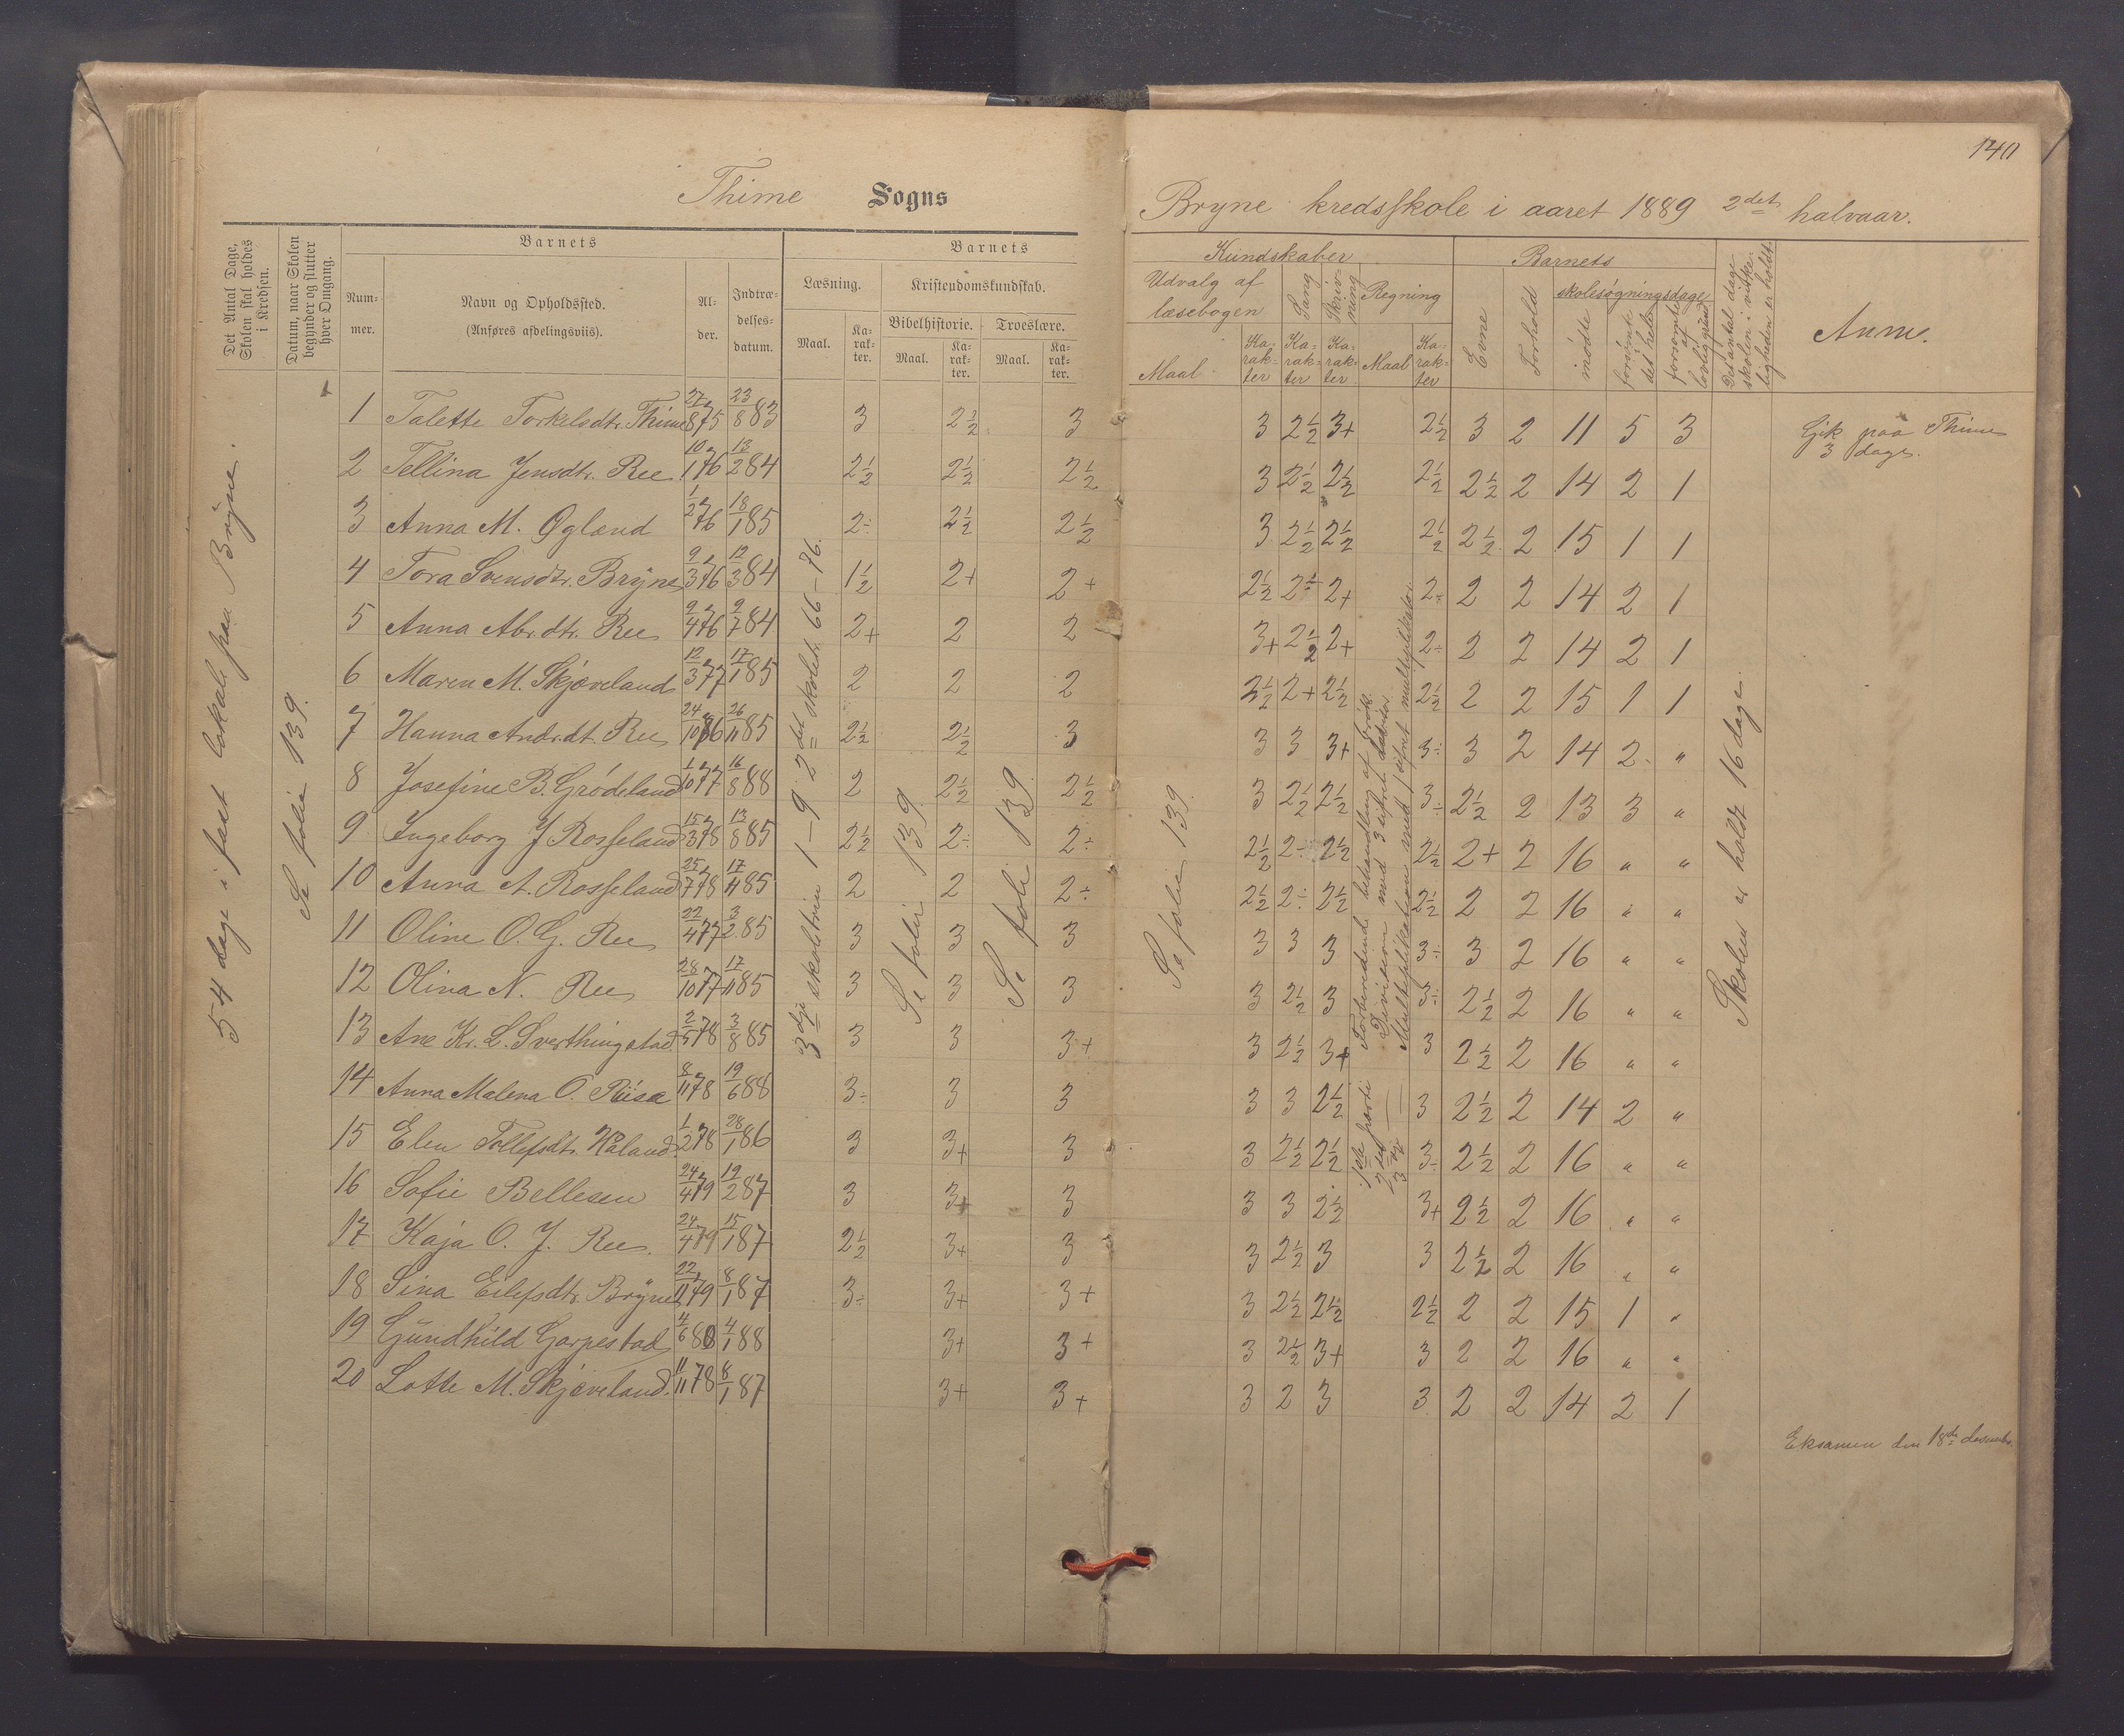 140
Thime Sogns
Bryne kredsskole i aaret 1889 2det halvaar.
Det Antal Dage, Skolen skal holdes i Kredsen.
Datum, naar Skolen begynder og slutter hver Omgang.
Barnets
Nummer.
Navn og Opholdssted.
(Anføres afdelingsviis).
Alder.
Indtrædelsesdatum.
Barnets
Læsning.
Maal.
Karakter.
Kristendomskundskab.
Bibelhistorie.
Maal.
Karakter.
Troeslære.
Maal.
Karakter.
Kundskaber
Udvalg af læsebogen
Maal
Karakter
Sang
Karakter
Skrivning
Karakter
Regning
Maal
Karakter
Barnets
Evne
Forhold
skolesøgningsdage
mødte
forsømte det hele
forsømte af lovlig grund
Det antal dage skolen i virkeligheden er holdt
Anm.
54 dage i fast lokale paa Bryne.
Se folio 139.
3dje skoletrin 1-9 2det skoletr. 66-76.
Se folio 139
Se folio 139
Se folio 139
1ste parti Forberedende behandling af brøk.
2det — Division med 3 cifret divisor
3dje — Multiplikation med 1 cifret multiplikator
Skolen er holdt 16 dage.
1 Talette Torkelsdtr. Thime 27/8 75 23/8 83 3 2½ 3 3 2½ 3+ 2½ 3 2 11 5 3 Gik paa Thime
3 dage.
2 Tellina Jensdtr. Ree 10/1 76 13/2 84 2½ 2½ 2½ 3 2½ 2½ 2½ 2½ 2 14 2 1
3 Anna M. Øgland 1/2 76 18/1 85 2÷ 2½ 2½ 3 2½ 2½ 2½ 2½ 2 15 1 1
4 Tora Svensdtr. Bryne 9/3 76 12/3 84 1½ 2+ 2+ 2½ 2÷ 2+ 2÷ 2 2 14 2 1
5 Anna Abr.dtr. Ree 9/4 76 9/7 84 2+ 2 2 3+ 2½ 2+ 2÷ 2 2 14 2 1
6 Maren M. Skjæveland 12/3 77 17/1 85 2 2 2 2½ 2+ 2½ 2½ 2 2 15 1 1
7 Hanna Andr.dt. Ree 24/10 76 26/11 85 2½ 2½ 3 3 3 3+ 3÷ 3 2 14 2 "
8 Josefine B. Grødeland 1/10 77 16/8 88 2 2½ 2½ 3 2½ 2½ 3÷ 2½ 2 13 3 "
9 Ingeborg J Rosseland 15/3 78 13/8 85 2½ 2÷ 2÷ 2½ 2÷ 2½ 2½ 2+ 2 16 " "
10 Anna A. Rosseland 25/7 78 17/11 85 2 2 2÷ 2½ 2÷ 2½ 2½ 2 2 16 " "
11 Oline O. G. Ree 22/4 77 3/2 85 3 3 3 3 3 3 3÷ 3 2 16 " "
12 Olina N. Ree 28/10 77 17/11 85 3 3 3 3 2½ 3 3÷ 2½ 2 16 " "
13 Ane Kr. L. Sverthingstad 2/5 78 3/8 85 3 3 3+ 3 2½ 3+ 3 2½ 2 16 " "
14 Anna Malena O. Riisa 8/11 78 19/6 88 3÷ 3 3 3 3 2½ 3 2½ 2 14 2 "
15 Elen Tollefsdtr. Håland 1/2 78 28/1 86 3 3+ 3 3 2½ 2½ 3÷ 2½ 2 16 " "
16 Sofie Bellesen 24/4 79 19/2 87 3 3+ 3 3 3 2½ 3+ 2½ 2 16 " "
17 Kaja O. J. Ree. 24/4 79 15/1 87 2½ 3+ 3 3 2½ 3 3 2½ 2 16 " "
18 Sina Eilefsdtr. Bryne 22/11 79 8/1 87 3÷ 3+ 3+ 3 2½ 2½ 2½ 2 2 15 1 "
19 Gundhild Garpestad 4/6 80 4/1 88 3+ 3+ 3 2½ 3+ 3 2 2 16 " "
20 Lotte M. Skjæveland. 11/11 78 8/1 87 3+ 3+ 3 2 3 3 2 2 14 2 1
Eksamen den 18de desember.